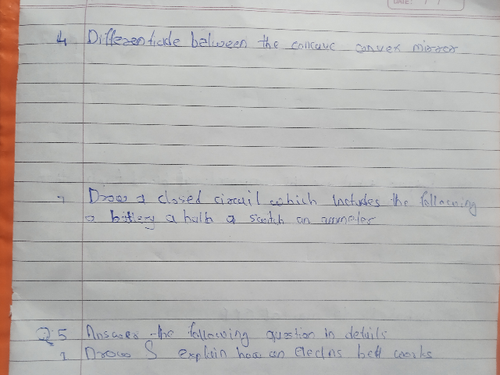 DATE: / /
4 Differentiate between the concave convex mirror
, Draw a closed circuit which includes the following
a battery a bulb a switch an ammeter
Q.5 Answer the following question in details
1 Draw & explain how an electric bell works